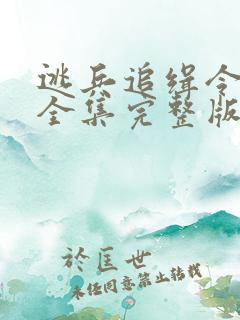 逃兵追缉令
全集完整版
於匡世
未经同意禁止转载